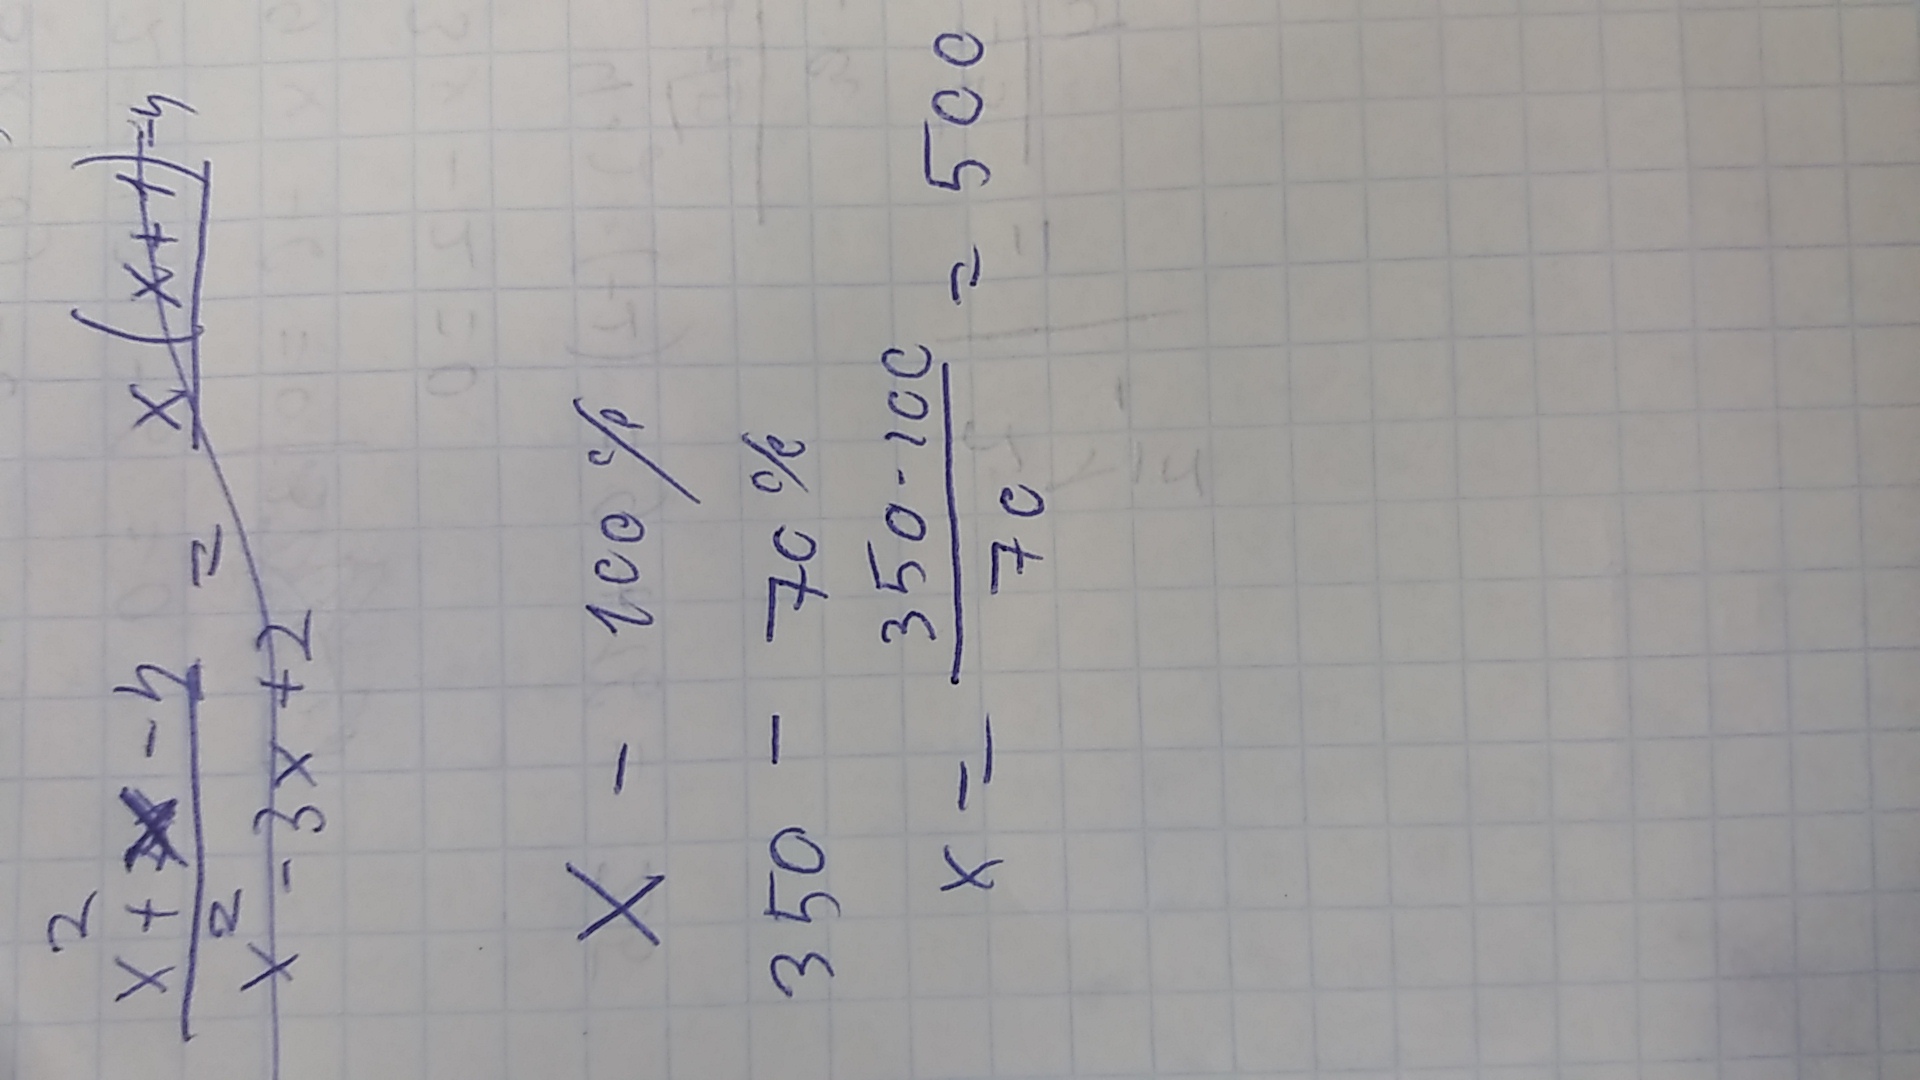 x² + x - 4 / x² - 3x + 2 = x(x+1)-4
X - 100%
350 - 70%
x = 350·100 / 70 = 500